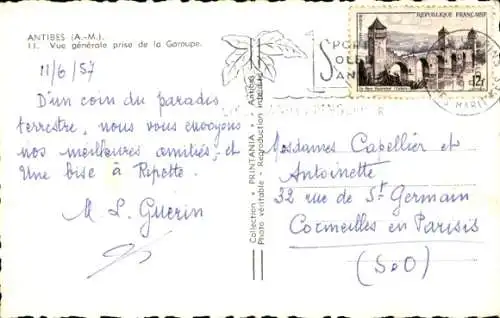 ANTIBES (A.-M.)
11. Vue générale prise de la Garoupe.
11/6/57
D'un coin du paradis
terrestre, nous vous envoyons
nos meilleures amitiés, et
Une bise à Pipette.
M. L. Guérin
Collection - PRINTANIA - Antibes
Photo véritable - Reproduction interdite
SPOR
SOL
SAN
REPUBLIQUE FRANÇAISE
12F
Mesdames Capellier et
Antoinette
32 rue de St Germain
Cormeilles en Parisis
(S&O)